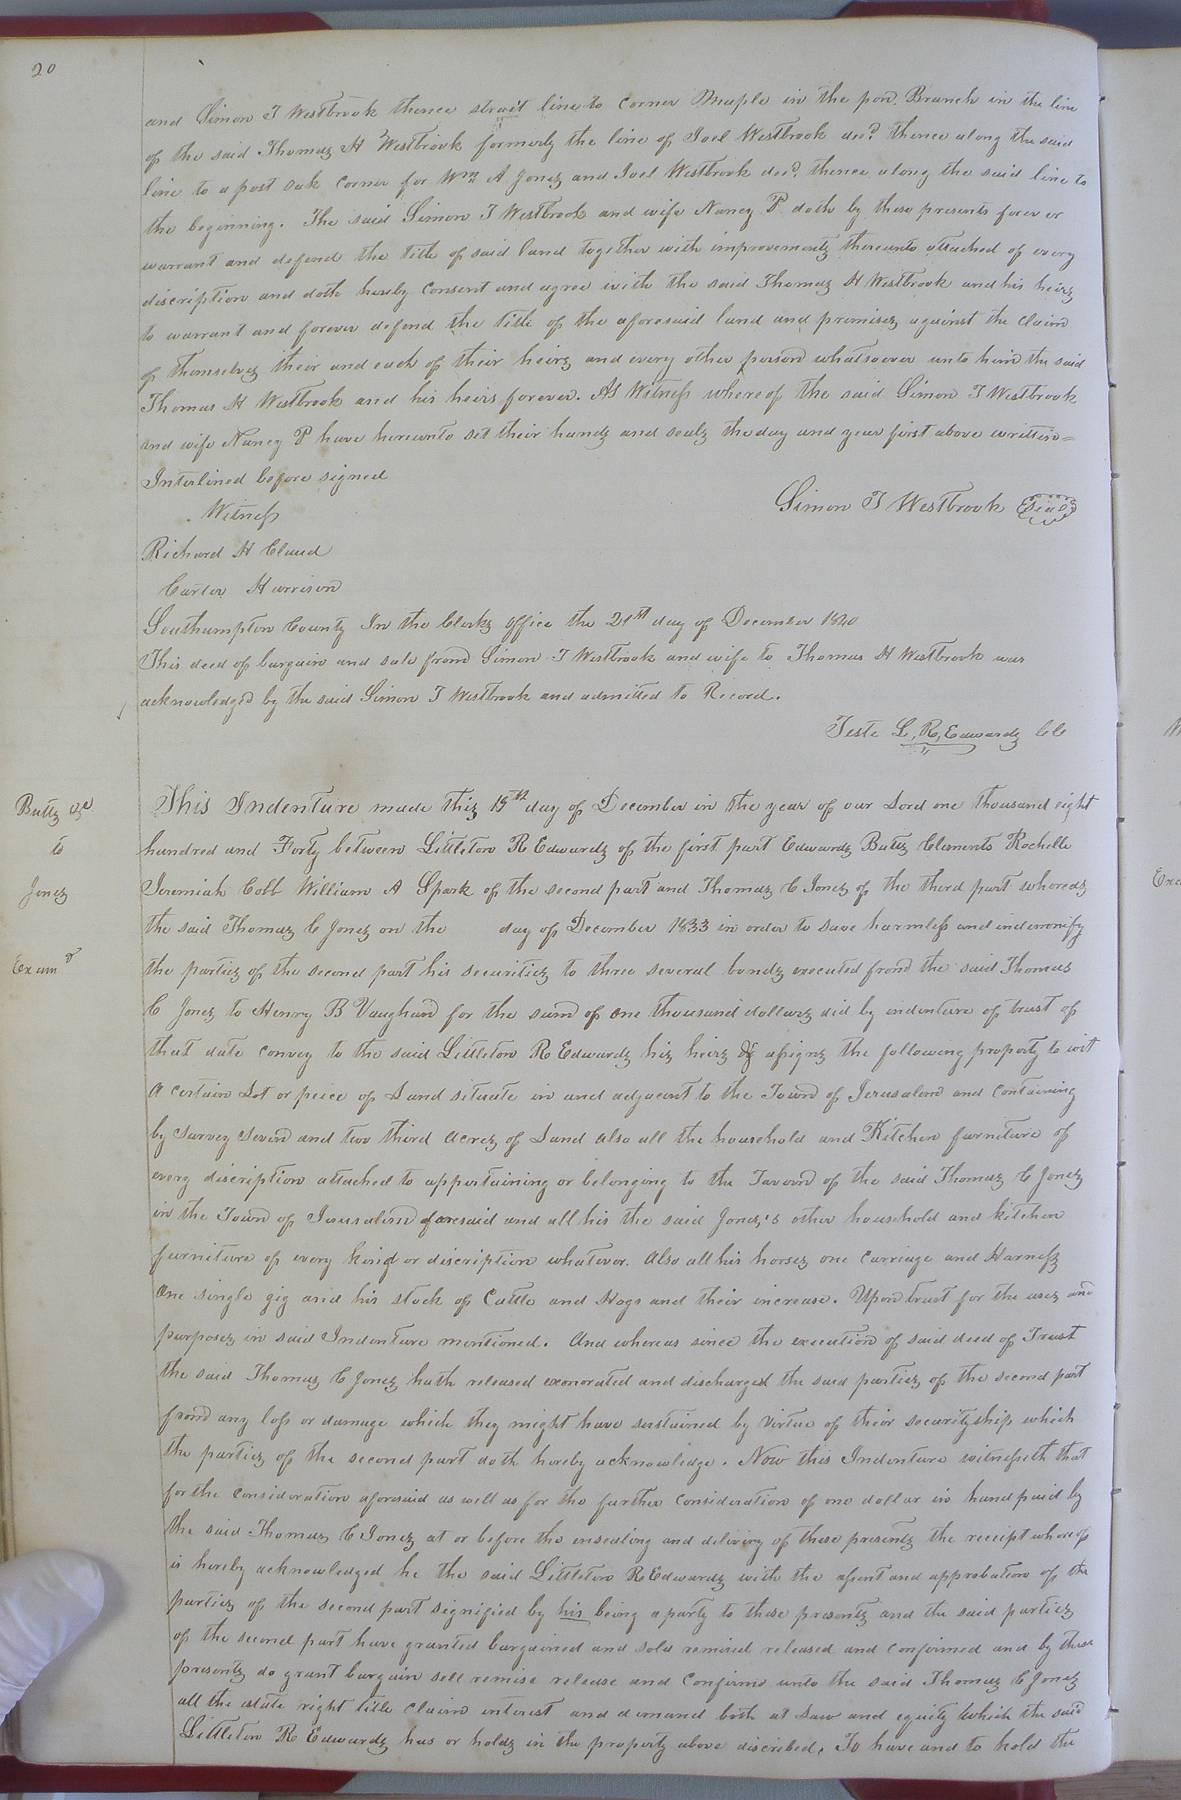 20
and Simon T Westbrook thence strait line to corner Maple in the pon Branch in the line
of the said Thomas H Westbrook formerly the line of Joel Westbrook decd thence along the said
line to a post oak corner for Wm A Jones and Joel Westbrook decd thence along the said line to
the beginning. The said Simon T Westbrook and wife Nancy P doth by these presents forever
warrant and defend the title of said land together with improvements thereunto attached of every
discription and doth hereby consent and agree with the said Thomas H Westbrook and his heirs
to warrant and forever defend the title of the aforesaid land and premises against the claim
of themselves their and each of their heirs and every other person whatsoever unto him the said
Thomas H Westbrook and his heirs forever. As Witness whereof the said Simon T Westbrook
and wife Nancy P have hereunto set their hands and seals the day and year first above written=
Interlined before signed
Witness
Simon T Westbrook Seal
Richard H Claud
Carter Harrison
Southampton County In the Clerks office the 21st day of December 1840
This deed of bargain and sale from Simon T Westbrook and wife to Thomas H Westbrook was
acknowledged by the said Simon T Westbrook and admitted to Record.
Teste L, R, Edwards CC
Butts &c
to
Jones
Examd
This Indenture made this 15th day of December in the year of our Lord one thousand eight
hundred and Forty between Littleton R Edwards of the first part Edwards Butts Clements Rochelle
Jeremiah Cobb William A Spark of the second part and Thomas C Jones of the third part whereas
the said Thomas C Jones on the day of December 1833 in order to save harmless and indemnify
the parties of the second part his securities to three several bonds executed from the said Thomas
C Jones to Henry B Vaughan for the sum of one thousand dollars did by indenture of trust of
that date convey to the said Littleton R Edwards his heirs & assigns the following property to wit
A certain Lot or peece of Land situate in and adjacent to the Town of Jerusalem and containing
by survey seven and two third acres of Land also all the household and Kitchen furniture of
every discription attached to appertaining or belonging to the Tavern of the said Thomas C Jones
in the Town of Jerusalem aforesaid and all his the said Jones's other household and kitchen
furniture of every kind or discription whatever. Also all his horses one carriage and Harness
One single gig and his stock of Cattle and Hogs and their increase. Upon trust for the uses and
purposes in said Indenture mentioned. And whereas since the execution of said deed of Trust
the said Thomas C Jones hath released exonorated and discharged the said parties of the second part
from any loss or damage which they might have sustained by virtue of their securityship which
the parties of the second part doth hereby acknowledge. Now this Indenture witnesseth that
for the consideration aforesaid as well as for the further consideration of one dollar in hand paid by
the said Thomas C Jones at or before the ensealing and delivery of these presents the receipt whereof
is hereby acknowledged he the said Littleton R Edwards with the assent and approbation of the
parties of the second part signified by his being a party to these presents and the said parties
of the second part have granted bargained and sold remised released and confirmed and by these
presents do grant bargain sell remise release and confirm unto the said Thomas C Jones
all the estate right title claim interest and demand both at Law and equity which the said
Littleton R Edwards has or holds in the property above discribed. To have and to hold the